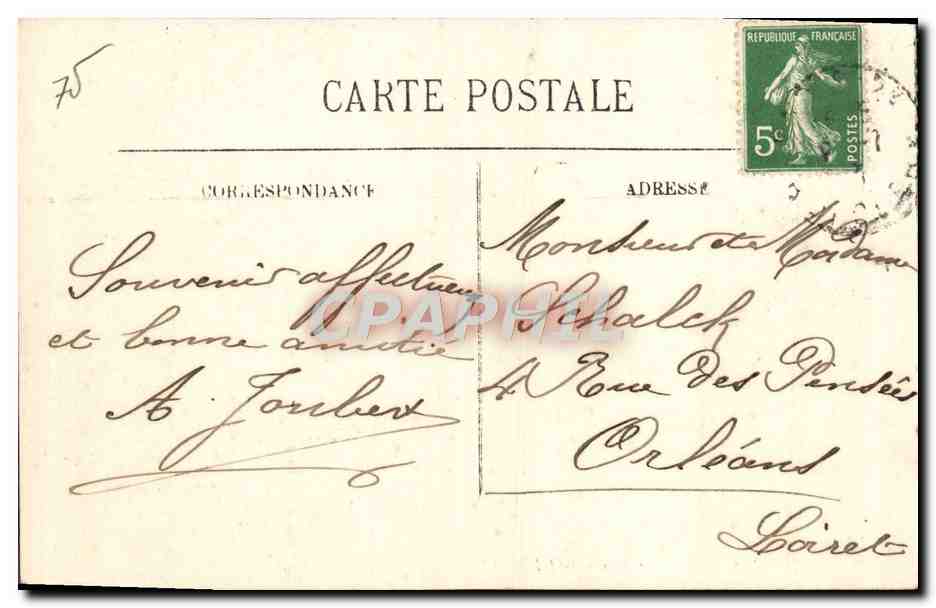 75
CARTE POSTALE
REPUBLIQUE FRANÇAISE
5c
POSTES
CORRESPONDANCE
ADRESSE
Souvenir affectueux
et bonne amitié
A. Joubert
Monsieur et Madame
Schalck
4 Rue des Pensées
Orléans
Loiret
CPAPHIL